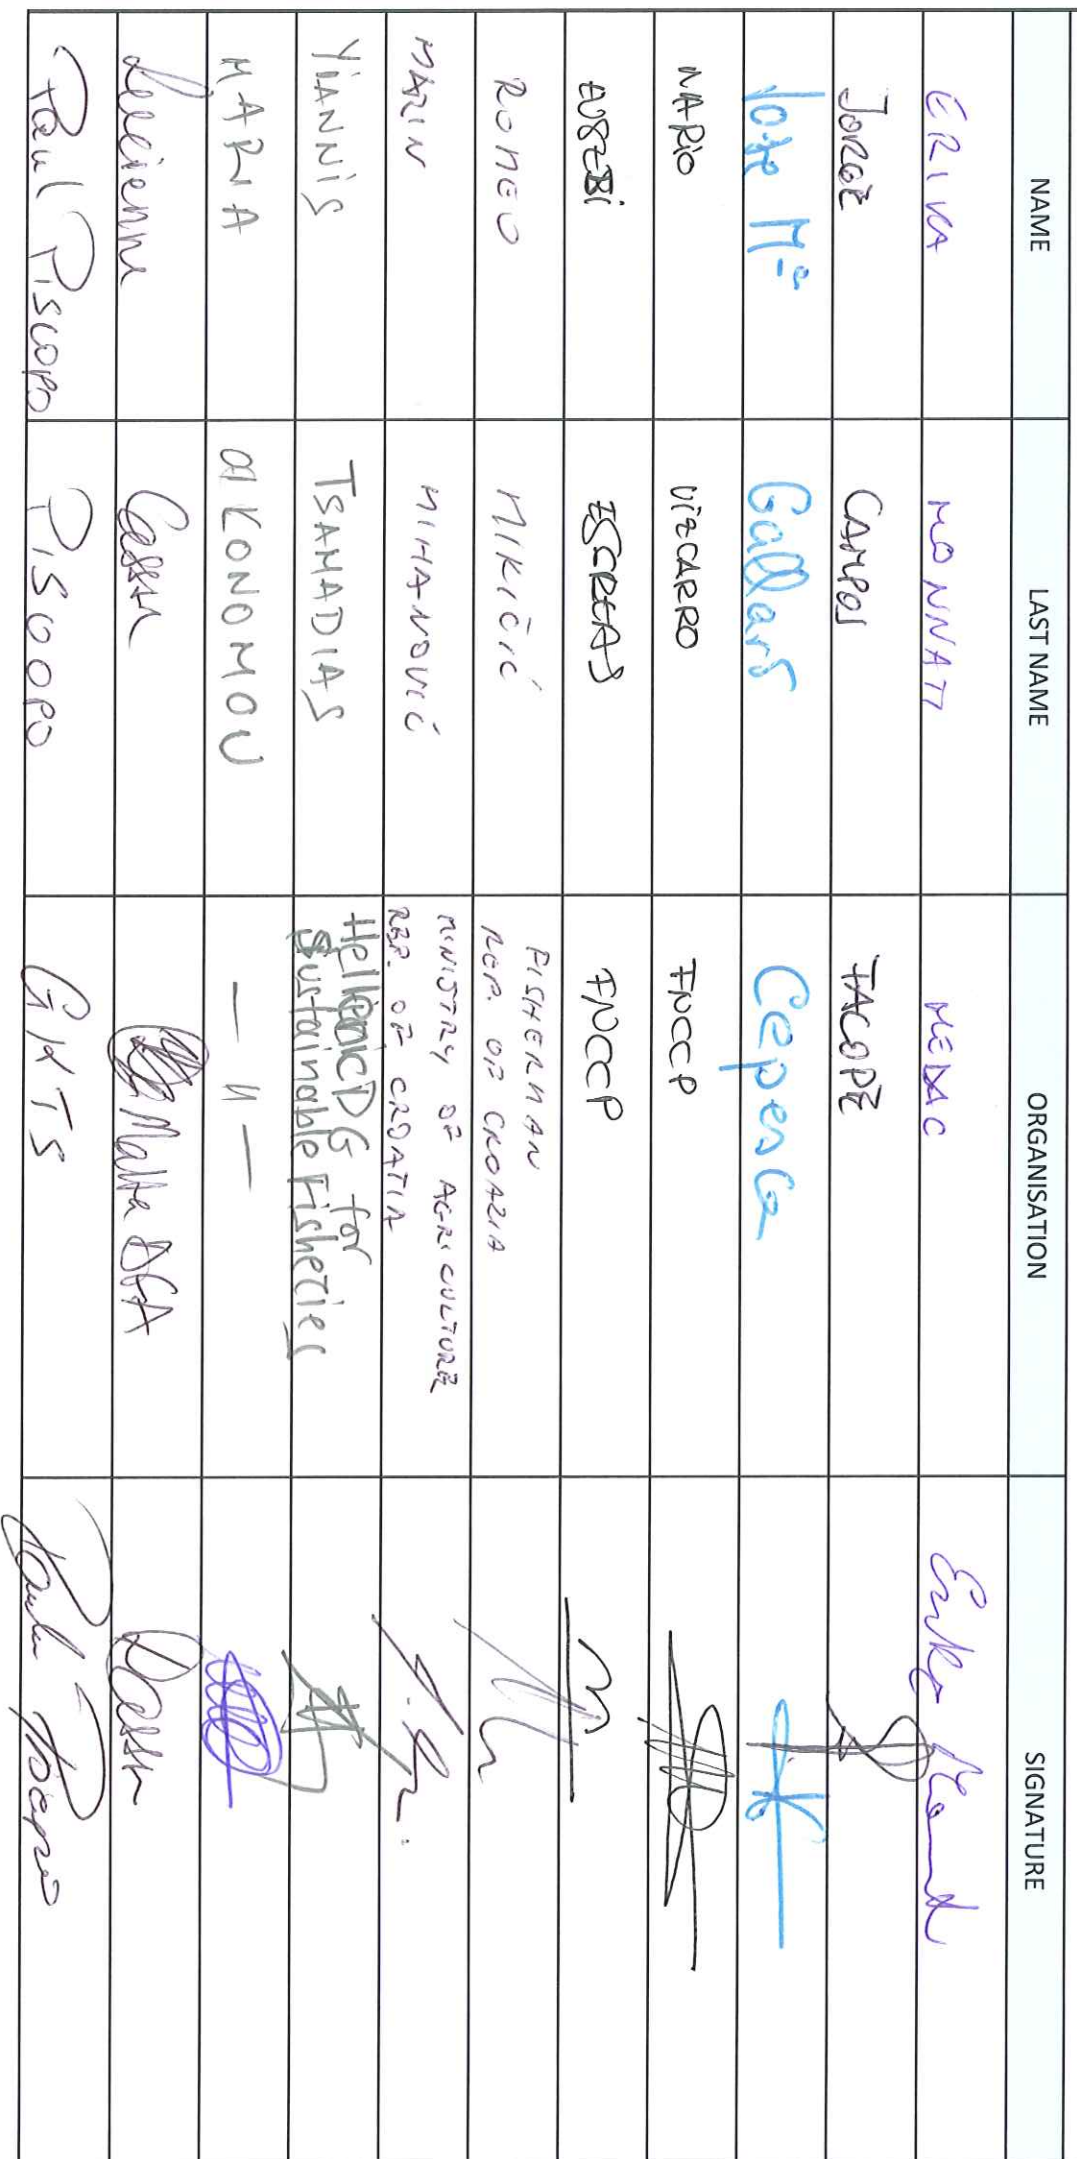 NAME LAST NAME ORGANISATION SIGNATURE
ERIKA MONNATI MEDAC
JORGE CAMPOS FACOPE
Jose Mª Gallart Cepesca
MARIO VIZCARRO FNCCP
EUSEBI ESCREAS FNCCP
ROMEO MIKIČIĆ FISHERMAN
REP. OF CROAZIA
MARIN MIHANOVIĆ MINISTRY OF AGRICULTURE
REP. OF CROATIA
YIANNIS TSAMADIAS Hellenic DG for
Sustainable Fisheries
MARIA OIKONOMOU — 11 —
Lucienne Malta DFA
Paul Piscopo PISCOPO GKTS